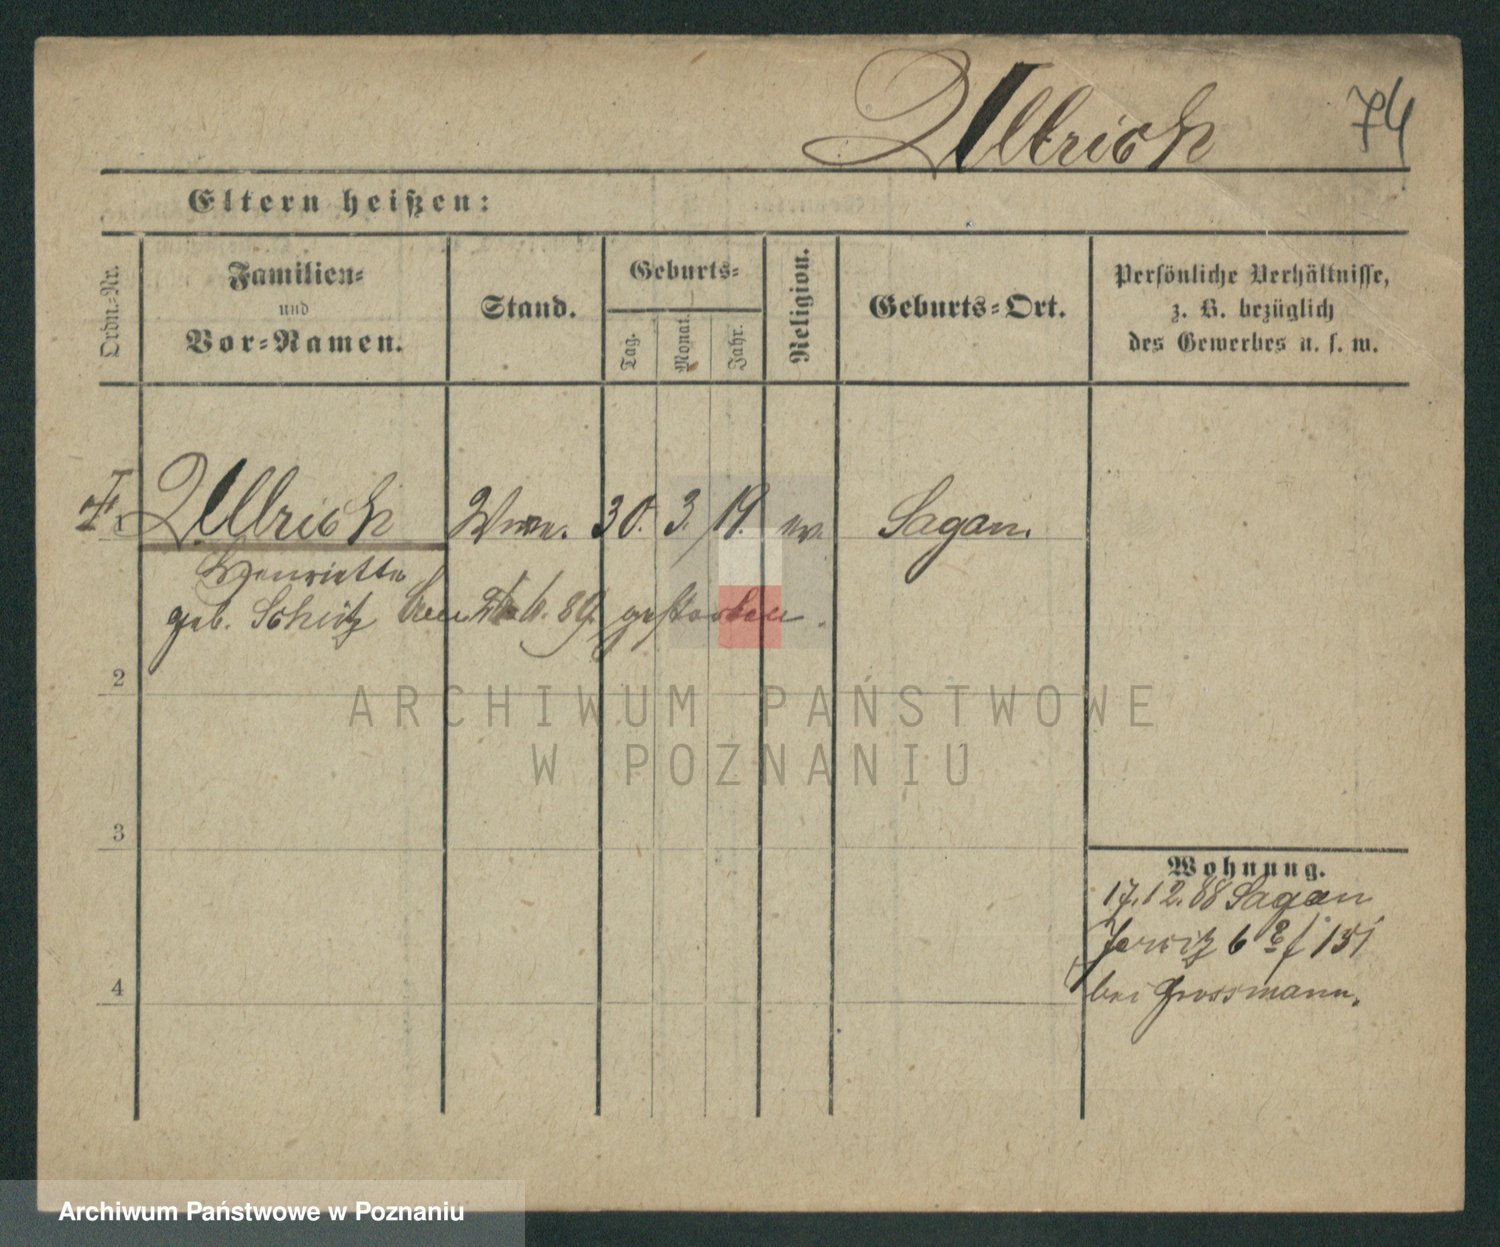 Ullrich 74
Eltern heißen:
Ordn.-Nr.
Familien-
und
Vor-Namen.
Stand.
Geburts-
Tag.
Monat.
Jahr.
Religion.
Geburts-Ort.
Persönliche Verhältnisse,
z. B. bezüglich
des Gewerbes u. s. w.
Ullrich Wwe. 30. 3. 19. ev. Sagan.
Henriette
geb. Schütz 89. gestorben.
2
3
4
Wohnung.
17.12.88 Sagan
6 151
bei Grossmann.
ARCHIWUM PAŃSTWOWE
W POZNANIU
Archiwum Państwowe w Poznaniu